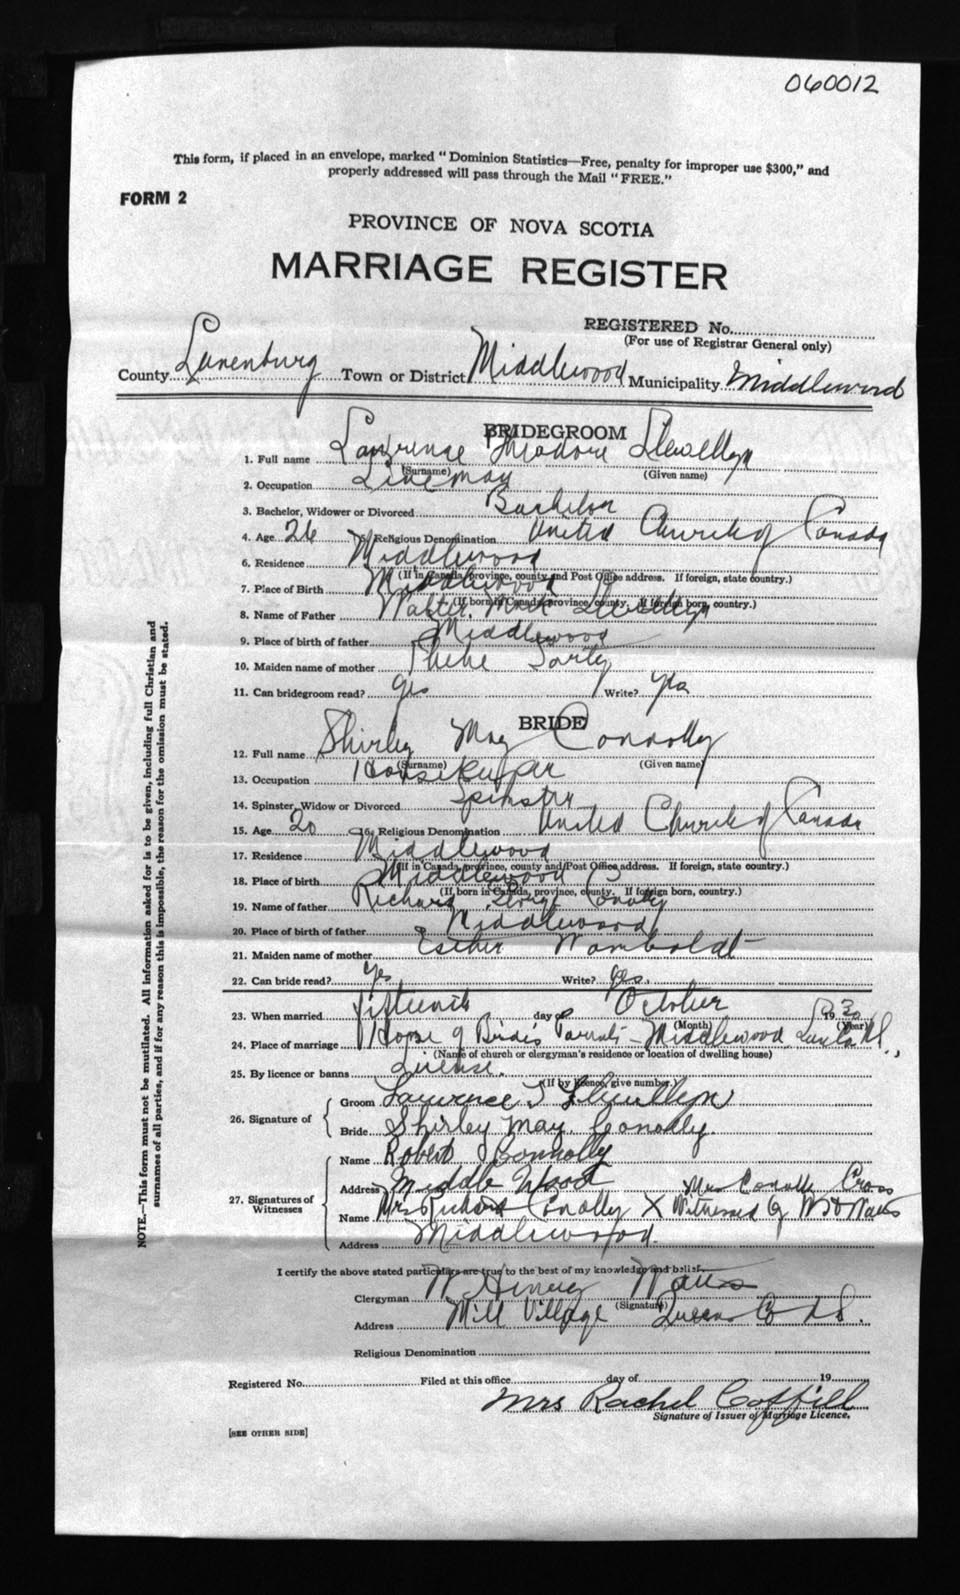 060012
This form, if placed in an envelope, marked "Dominion Statistics—Free, penalty for improper use $300," and
properly addressed will pass through the Mail "FREE."
FORM 2
PROVINCE OF NOVA SCOTIA
MARRIAGE REGISTER
REGISTERED No.
(For use of Registrar General only)
County Lunenburg Town or District Middlewood Municipality Middlewood
BRIDEGROOM
1. Full name Lawrence Theodore Llewellyn
(Surname) (Given name)
2. Occupation Lineman
3. Bachelor, Widower or Divorced Bachelor
4. Age 26 5. Religious Denomination United Church of Canada
6. Residence Middlewood
(If in Canada, province, county and Post Office address. If foreign, state country.)
7. Place of Birth Middlewood
(If born in Canada, province, county. If foreign born, country.)
8. Name of Father Walter Llewellyn
9. Place of birth of father Middlewood
10. Maiden name of mother Phebe
11. Can bridegroom read? yes Write? yes
BRIDE
12. Full name Shirley May Connolly
(Surname) (Given name)
13. Occupation Housekeeper
14. Spinster, Widow or Divorced Spinster
15. Age 20 16. Religious Denomination United Church of Canada
17. Residence Middlewood
(If in Canada, province, county and Post Office address. If foreign, state country.)
18. Place of birth Middlewood
(If born in Canada, province, county. If foreign born, country.)
19. Name of father Richard Conolly
20. Place of birth of father Middlewood
21. Maiden name of mother Esther Womboldt
22. Can bride read? yes Write? yes.
23. When married fifteenth day of October 19 30
(Month) (Year)
24. Place of marriage House of Bride's Parents - Middlewood
(Name of church or clergyman's residence or location of dwelling house)
25. By licence or banns License.
(If by licence, give number.)
26. Signature of
Groom Lawrence T Llewellyn
Bride Shirley May Conolly.
27. Signatures of Witnesses
Name Robert Connolly
Address Middle Wood
Mrs Conolly Cross
Name Mrs Richard Conolly X Witnessed by
Address Middlewood.
I certify the above stated particulars are true to the best of my knowledge and belief.
Clergyman W Henry Watts
(Signature)
Address Mill Village Queens Co N.S.
Religious Denomination
Registered No. Filed at this office day of 19
Mrs Rachel Coffill
Signature of Issuer of Marriage Licence.
[SEE OTHER SIDE]
NOTE.—This form must not be mutilated. All information asked for is to be given, including full Christian and
surnames of all parties, and if for any reason this is impossible, the reason for the omission must be stated.